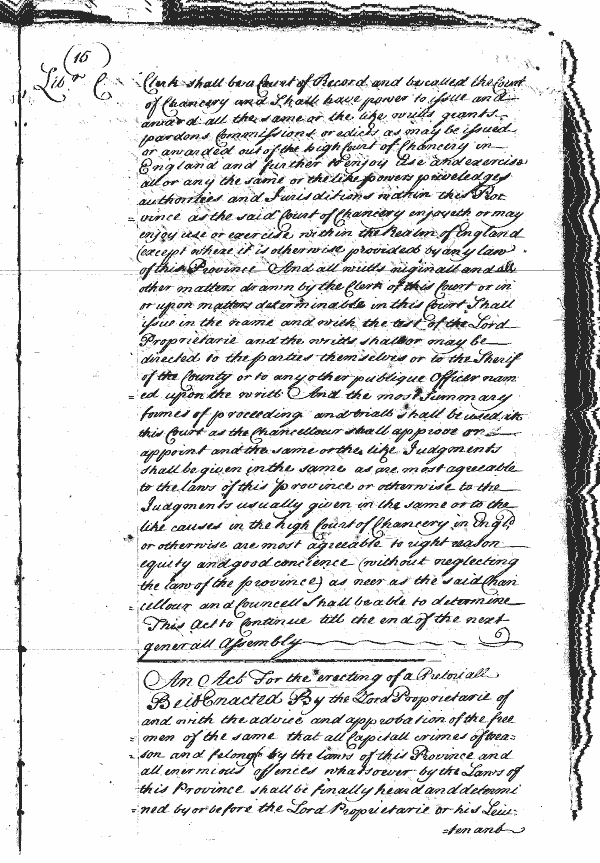 (15)
Libr C
Clerk shall be a Court of Record and be called the Court
of Chancery and Shall have power to issue and
award all the same or the like writts grants
pardons Commissions or edicts as may be issued
or awarded out of the high Court of Chancery in
England and further to enjoy use and exercise
all or any the same or the like powers priveledges
authorities and Jurisditions within this Pro
=vince as the said Court of Chancery enjoyeth or may
enjoy use or exercise within the Realm of England
(except where it is otherwise provided by any law
of this Province And all writts riginall and all
other matters drawn by the Clerk of this Court or in
or upon matters determinable in this Court Shall
issue in the name and with the test of the Lord
Proprietarie and the writs shall or may be
directed to the parties themselves or to the Sherif
of the County or to any other publique Officer nam
=ed upon the writt And the most Summary
formes of proceeding and trialls shall be used in
this Court as the Chancellour shall approve or
appoint and the same or the like Judgments
shall be given in the same as are most agreeable
to the laws of this province or otherwise to the
Judgments usually given in the same or to the
like causes in the high Court of Chancery in Engld
or otherwise are most agreeable to right reason
equity and good concience (without neglecting
the law of the province) as neer as the said Chan
=cellour and Councell Shall be able to determine
This Act to Continue till the end of the next
generall Assembly
An Act For the erecting of a Pretoriall
Be it Enacted By the Lord Proprietarie of
and with the advice and approbation of the free
=men of the same that all Capitall crimes of trea=
=son and felony by the laws of this Province and
all enormious offences whatsoever by the Laws of
this Province shall be finally heard and determi
=ned by or before the Lord Proprietarie or his Leiu=
=tenant